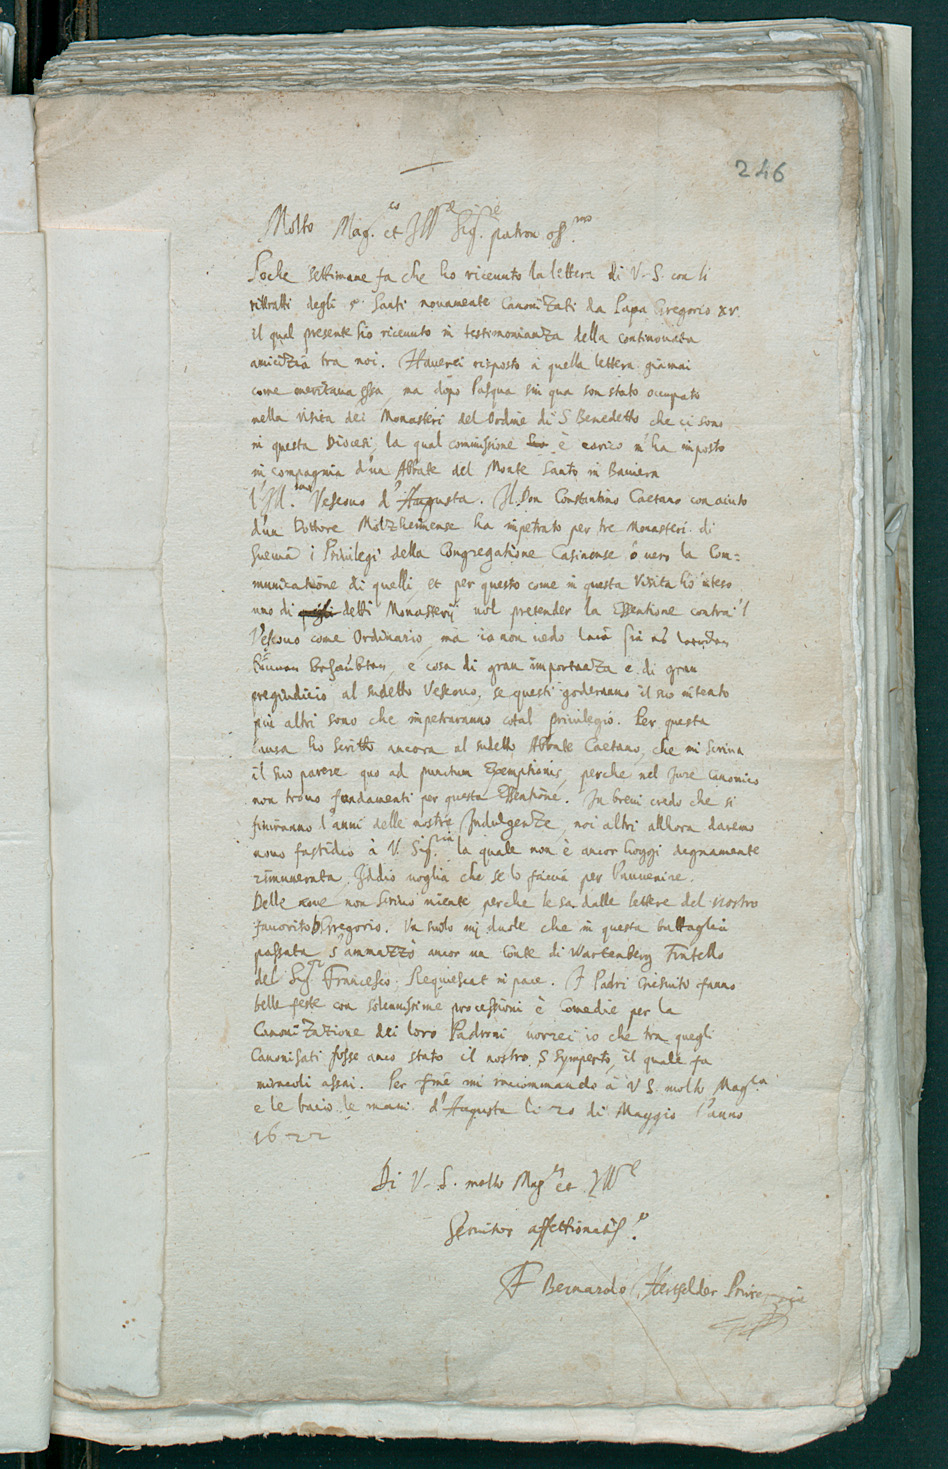 246
Molto Mag.co et Ill.re Sig.re patron oss.mo
Poche settimane fa che ho riceuuto la lettera di V.S. con li
rittratti degli 5 Santi nouamente Canonizati da Papa Gregorio XV.
il qual presente hò riceuuto in testimonianza della continouata
amicizia tra noi. Hauerei risposto à quella lettera giamai
come meritaua essa, ma dopo Pasqua sin qua son stato occupato
nella visita dei Monasteri del Ordine di S Benedetto che ci sono
in questa Diocesi, la qual commissione è carico m'ha imposto
in compagnia d'un Abbate del Monte Santo in Bauiera
l'Ill.mo Vescouo d'Augusta. Il Don Constantino Caetano con aiuto
d'un Dottore Molzheimense ha impetrato per tre Monasteri di
Sueuia i Priuilegi della Congregatione Casinense ò uero la Com=
municatione di quelli, et per questo come in questa Visita hò inteso
uno di detti Monasterij uol pretender la Essentione contra'l
Vescouo come Ordinario, ma io non uedo
è cosa di gran importanza e di gran
pregiudicio al sudetto Vescouo, se questi goderanno il suo intento
piu altri sono che impetraranno cotal priuilegio. Per questa
causa ho scritto ancora al sudetto Abbate Caetano, che mi scriua
il suo parere quo ad punctum Exemptionis, perche nel Jure Canonico
non trouo fundamenti per questa Essentione. In breui credo che si
finiranno l'anni delle nostre Indulgenze, noi altri allhora daremo
nouo fastidio à V. Sig.ria la quale non è ancor hoggi degnamente
rimunerata. Iddio uoglia che se lo faccia per l'auuenire.
Delle noue non scriuo niente, perche le sa dalle lettere del nostro
fauorito Gregorio. Un solo mi duole che in questa battaglia
passata s'ammazzò ancor un Conte di Wartenberg Fratello
del Sig.r Francesco: Requiescat in pace. I Padri Giesuito fanno
belle feste con solennissime processioni è Comedie per la
Canonizazione dei loro Padroni uorrei io che tra quegli
Canonisati fosse anco stato il nostro S Symperto, il quale fa
miracoli assai. Per fine mi raccommando à V S. molto Mag.ca
e le bacio le mani. d'Augusta li 20 di Maggio l'anno
1622
Di V.S. molto Mag.ca et Ill.re
Seruitor affettionatiss.o
F Bernardo Hertfelder Priore